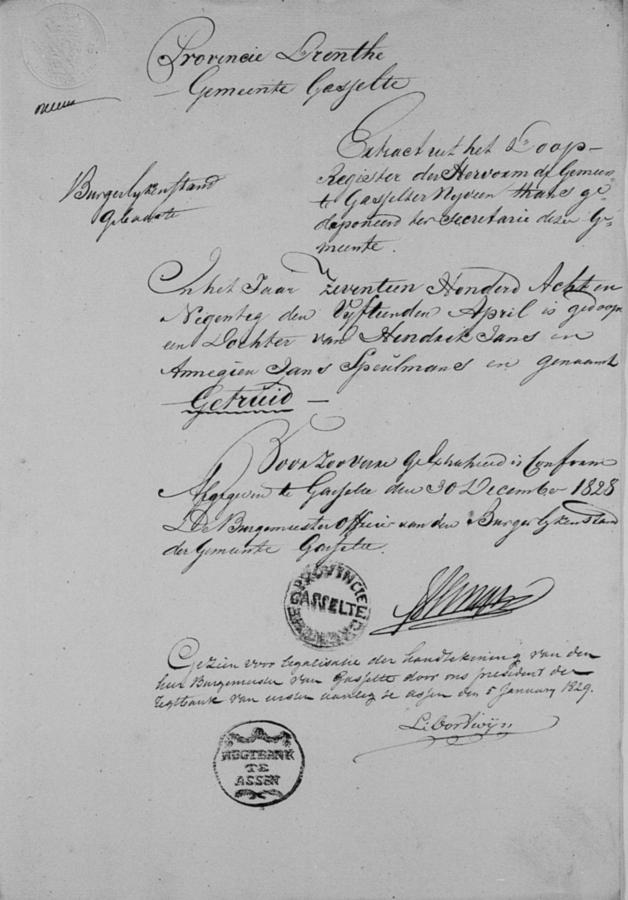 Provincie Drenthe
Gemeente Gasselte
Burgerlyken stand
Geboorte
Extract uit het Doop-
Register der Hervormde Gemeen-
te Gasselter Nyveen thans ge-
deponeerd ter Secretarie dezer Ge-
meente.
In het Jaar Zeventien Honderd Acht en
Negenteg den Vyftienden April is gedoopt
een Dochter van Hendrek Jans en
Annegien Jans Speulmans en genaamt
Getruid —
Voor zoo verre geExtraheerd is Conform
Afgegeven te Gasselte den 30 December 1828
De Burgemeester Officier van den Burgerlyken stand
der Gemeente Gasselte.
PROVINCIE DRENTHE
GASSELTE
Gezien voor legalisatie der handtekening van den
heer Burgemeester van Gasselte door ons president der
regtbank van eersten aanleg te Assen den 5 January 1829.
REGTBANK
TE
ASSEN